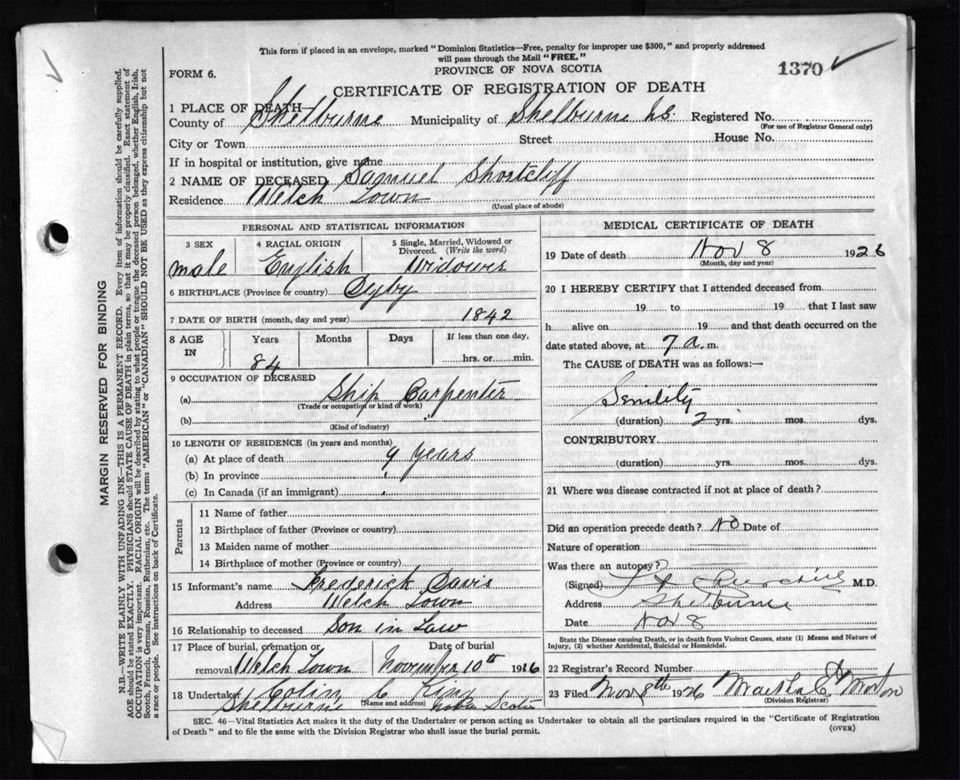 This form if placed in an envelope, marked "Dominion Statistics—Free, penalty for improper use $300," and properly addressed
will pass through the Mail "FREE."
PROVINCE OF NOVA SCOTIA
1370
FORM 6.
CERTIFICATE OF REGISTRATION OF DEATH
1 PLACE OF DEATH
County of Shelburne Municipality of Shelburne Registered No.
(For use of Registrar General only)
City or Town Street House No.
If in hospital or institution, give name
2 NAME OF DECEASED Samuel Shortcliff
Residence Welch Town
(Usual place of abode)
PERSONAL AND STATISTICAL INFORMATION
3 SEX 4 RACIAL ORIGIN 5 Single, Married, Widowed or
Divorced. (Write the word)
male English Widower
6 BIRTHPLACE (Province or country) Dyby
7 DATE OF BIRTH (month, day and year) 1842
8 AGE IN Years Months Days If less than one day,
84 hrs. or min.
9 OCCUPATION OF DECEASED
(a) Ship Carpenter
(Trade or occupation or kind of work)
(b)
(Kind of industry)
10 LENGTH OF RESIDENCE (in years and months)
(a) At place of death 9 years
(b) In province "
(c) In Canada (if an immigrant)
Parents
11 Name of father
12 Birthplace of father (Province or country)
13 Maiden name of mother
14 Birthplace of mother (Province or country)
15 Informant's name Frederick Davis
Address Welch Town
16 Relationship to deceased Son in Law
17 Place of burial, cremation or Date of burial
removal Welch Town November 10th 1926
18 Undertaker Colin C King
Shelburne (Name and address) Nova Scotia
MEDICAL CERTIFICATE OF DEATH
19 Date of death Nov 8 1926
(Month, day and year)
20 I HEREBY CERTIFY that I attended deceased from
19 to 19 that I last saw
h alive on 19 and that death occurred on the
date stated above, at 7 a. m.
The CAUSE of DEATH was as follows:—
Senility
(duration) 2 yrs. mos. dys.
CONTRIBUTORY
(duration) yrs. mos. dys.
21 Where was disease contracted if not at place of death?
Did an operation precede death? No Date of
Nature of operation
Was there an autopsy?
(Signed) M.D.
Address Shelburne
Date Nov 8
State the Disease causing Death, or in death from Violent Causes, state (1) Means and Nature of
Injury, (2) whether Accidental, Suicidal or Homicidal.
22 Registrar's Record Number
23 Filed Nov 8th 1926 Martha C Morton
(Division Registrar)
SEC. 46—Vital Statistics Act makes it the duty of the Undertaker or person acting as Undertaker to obtain all the particulars required in the "Certificate of Registration
of Death" and to file the same with the Division Registrar who shall issue the burial permit.
(OVER)
MARGIN RESERVED FOR BINDING
N.B.—WRITE PLAINLY WITH UNFADING INK—THIS IS A PERMANENT RECORD. Every item of information should be carefully supplied.
AGE should be stated EXACTLY. PHYSICIANS should STATE CAUSE OF DEATH in plain terms, so that it may be properly classified. Exact statement of
OCCUPATION is very important. RACIAL ORIGIN will be described by stating to what people or tongue the deceased person belonged, whether English, Irish,
Scotch, French, German, Russian, Ruthenian, etc. The terms "AMERICAN" or "CANADIAN" SHOULD NOT BE USED as they express citizenship but not
a race or people. See instructions on back of Certificate.